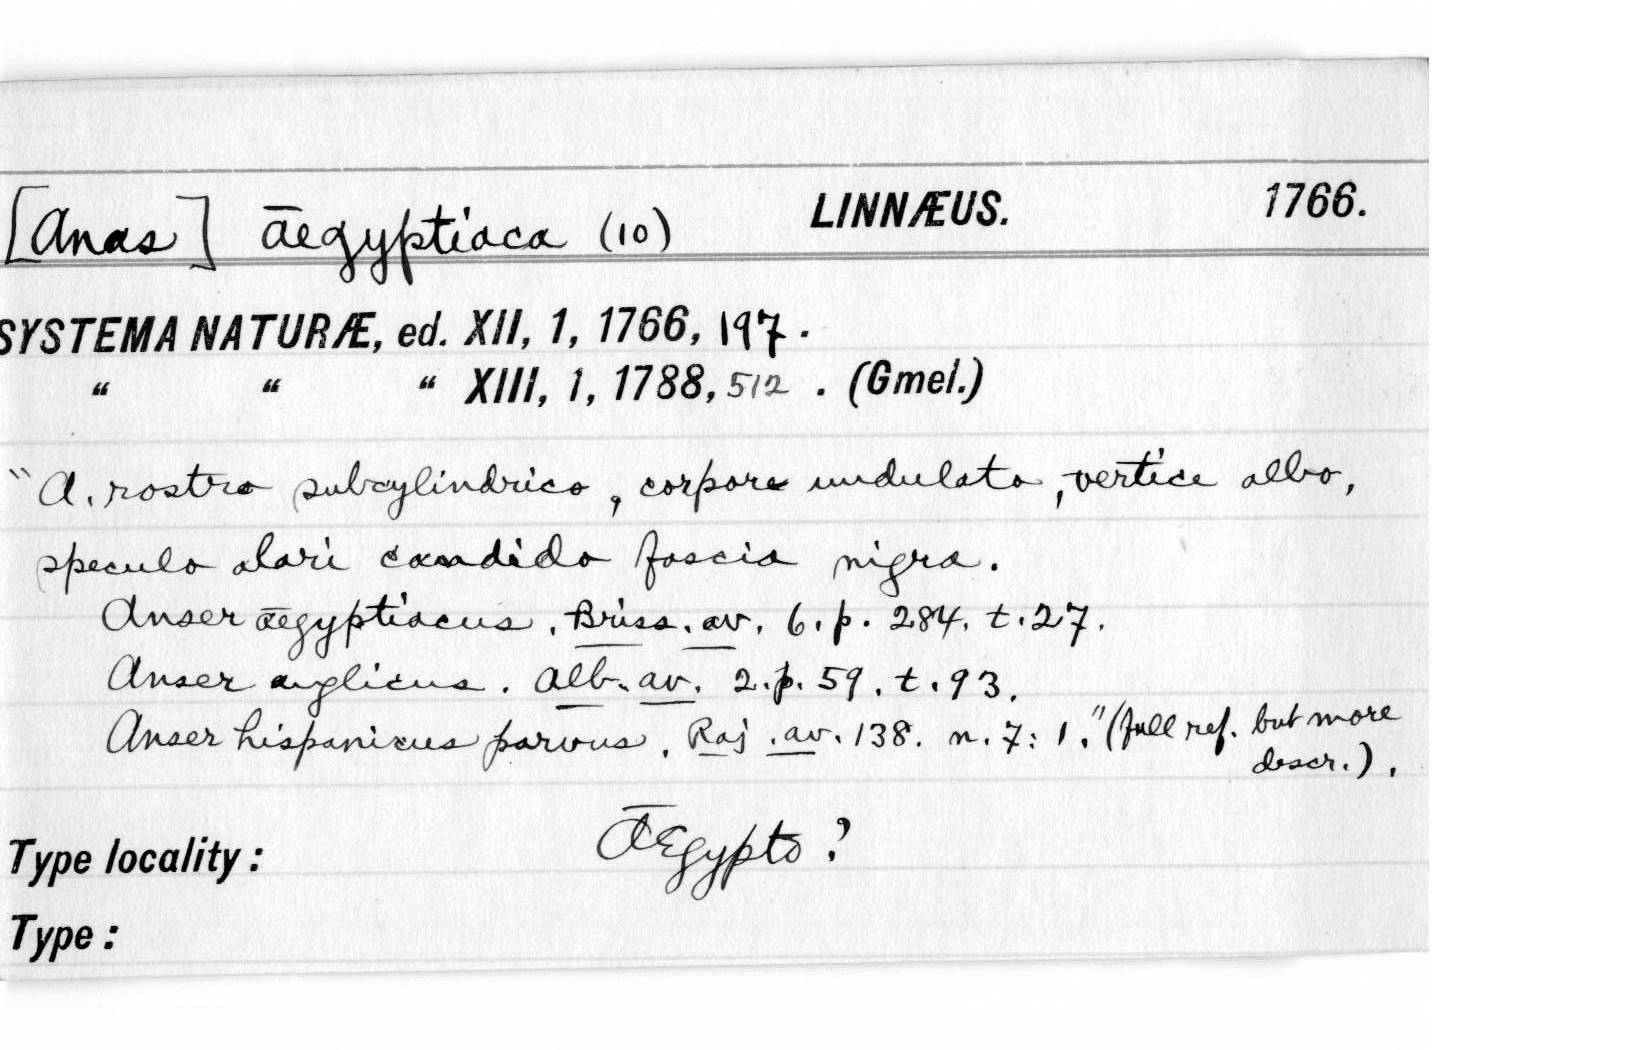 [Anas] āegyptiaca (10) LINNÆUS. 1766.
SYSTEMA NATURÆ, ed. XII, 1, 1766, 197.
“ “ “ XIII, 1, 1788, 512. (Gmel.)
"A. rostro subcylindrico, corpore undulato, vertice albo,
speculo alari candido fascia nigra.
Anser āegyptiacus. Briss. av. 6. p. 284. t. 27.
Anser anglicus. Alb. av. 2. p. 59. t. 93.
Anser hispanicus parvus. Raj. av. 138. n. 7: 1." (full ref. but more
descr.).
Type locality: Āegypto?
Type: